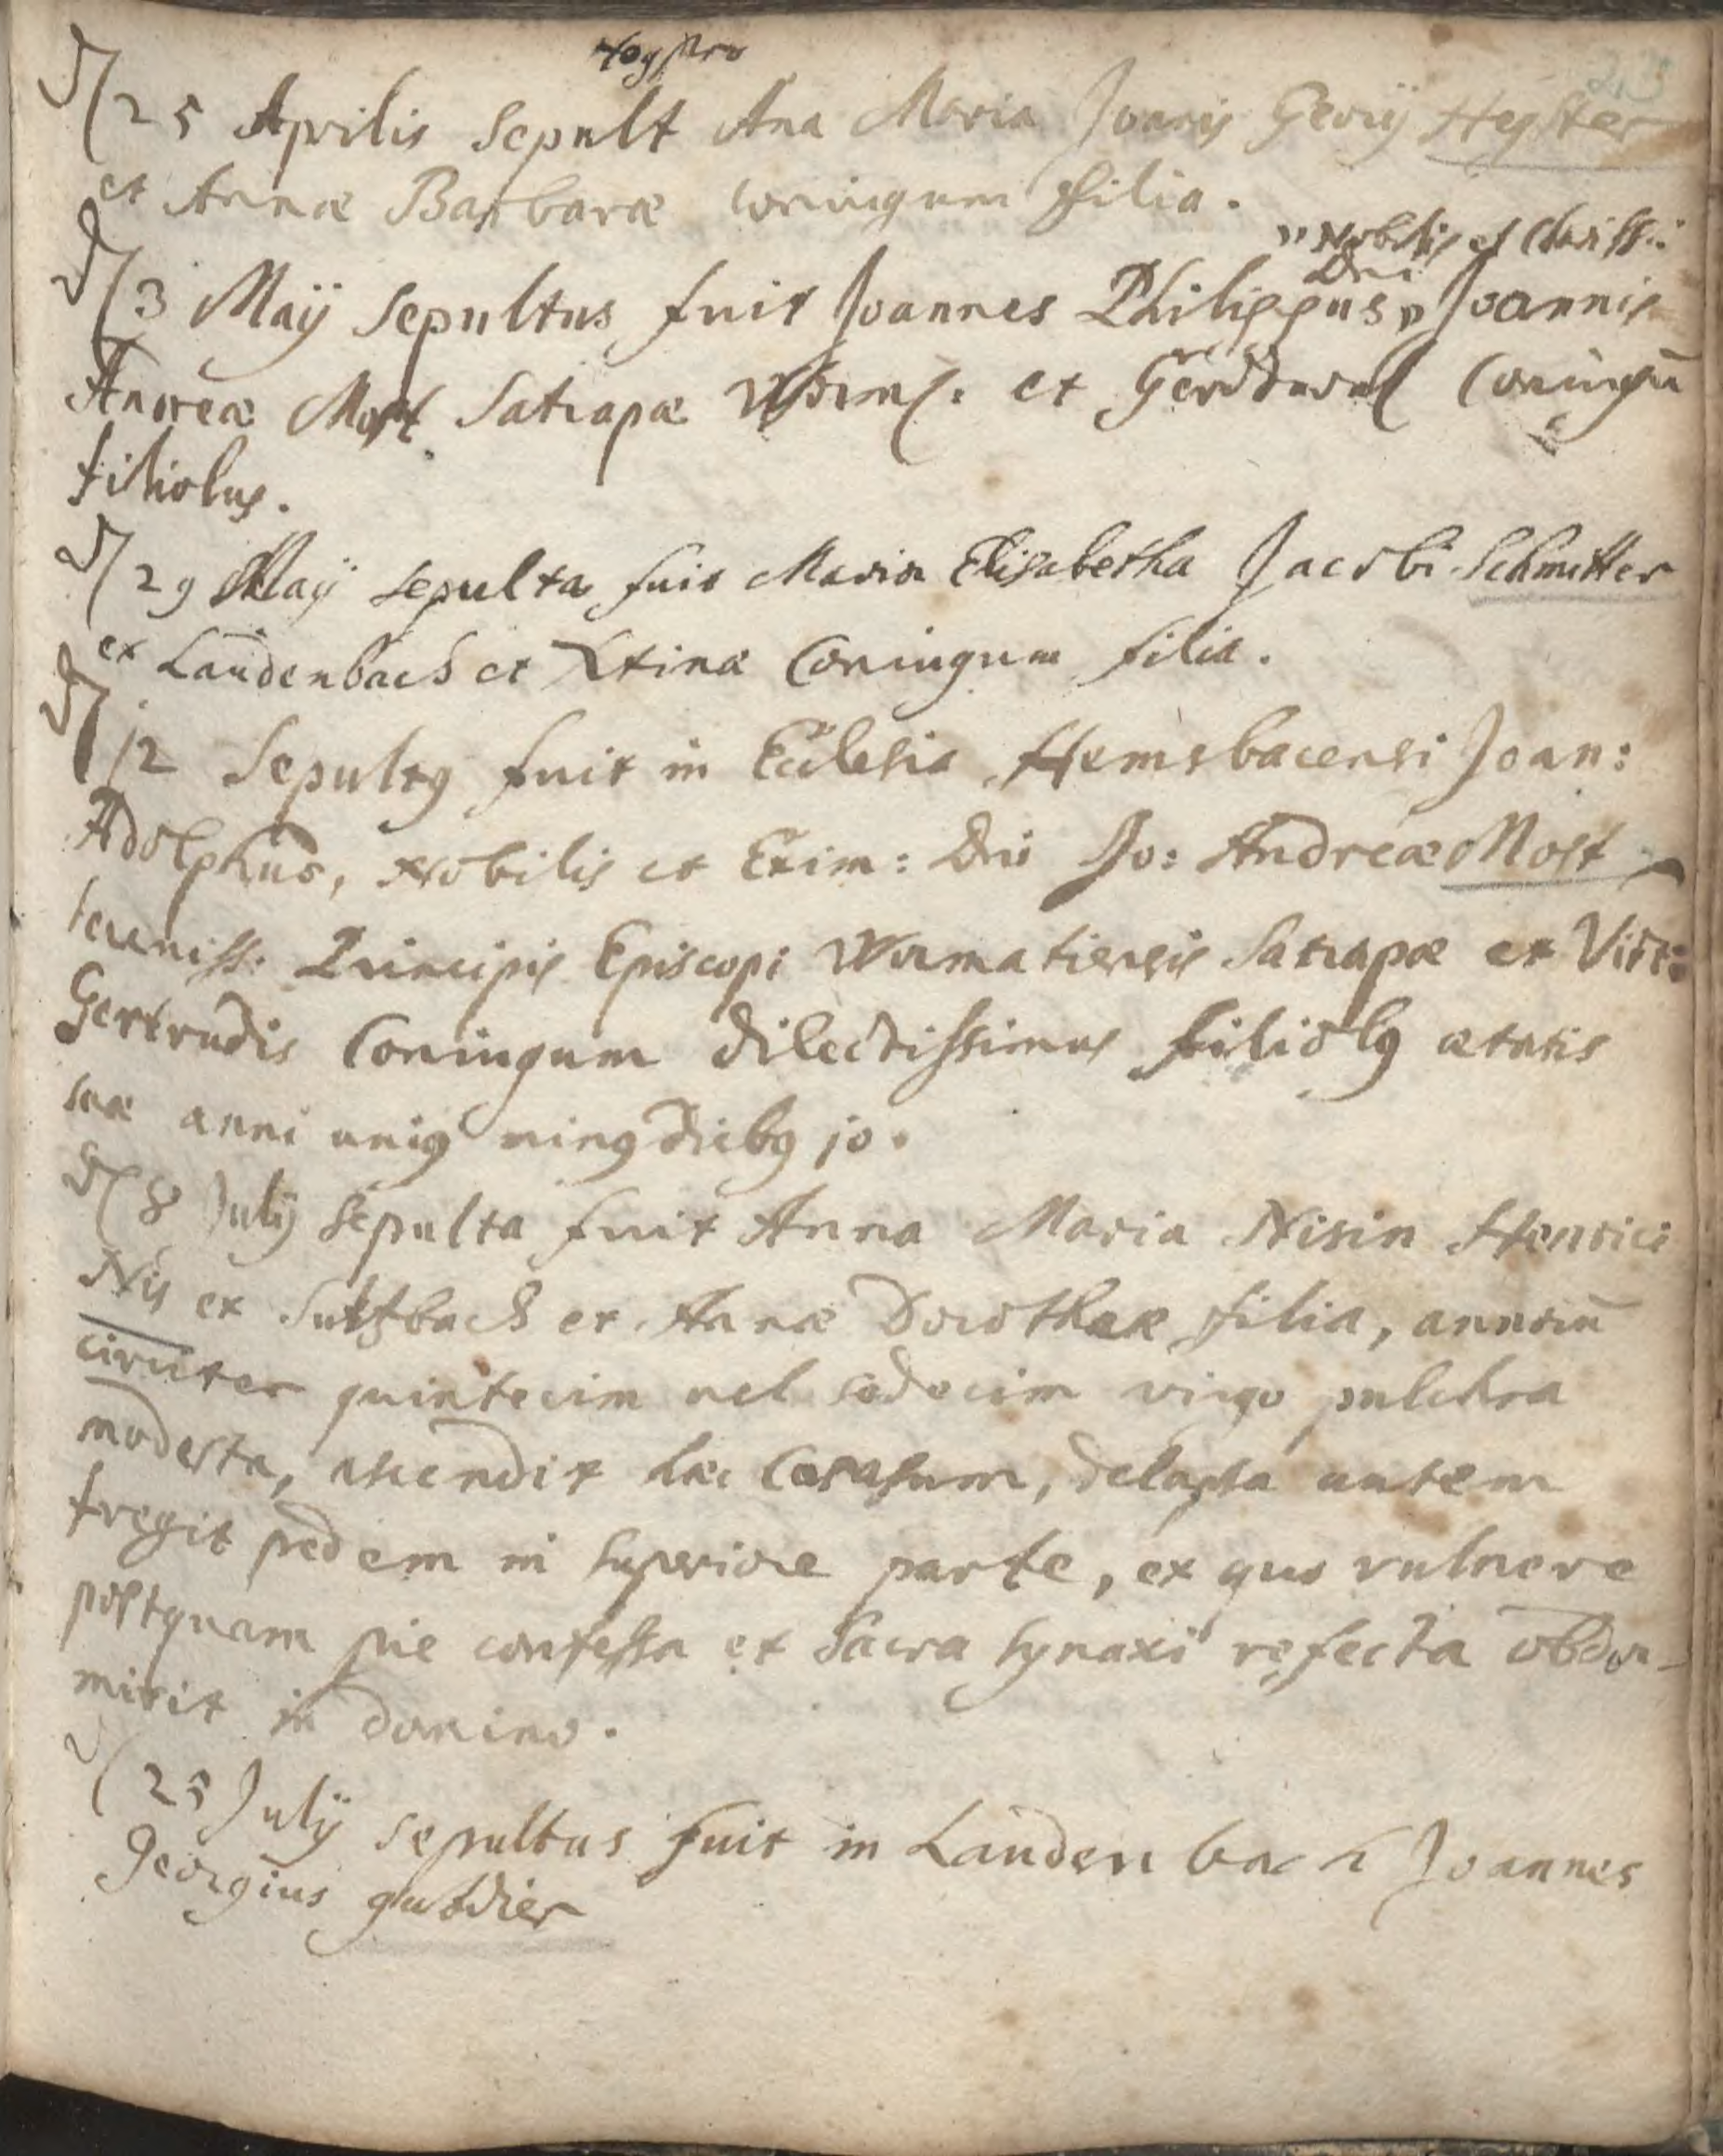 25 Aprilis Sepult Ana Maria Joanis Georij Heyster
et Annæ Barbaræ coniugum filia.
" Nobilis et clarissi:
Dni
3 Maij Sepultus fuit Joannes Philippus " Joannis
Andreæ Most Satrapæ Worms. et Gerdrud Coniugū
filiolus.
29 Maij sepulta fuit Maria Elisabetha Jacobi Schmitter
ex Laudenbach et Xtinæ Coniugum filia.
j2 Sepultg fuit in Ecclesia Hemsbacensi Joan:
Adolphus, Nobilis et Exim: Dni Jo: Andreæ Most
sereniss. Principis Episcopi Wormatiensis Satrapæ et Virt:
Gertrudis Coniugum dilectissimus filiolg ætatis
suæ anni unig ming diebg jo.
8 Julij Sepulta fuit Anna Maria Nisin Henrici
Nis ex Sultzbach et Annæ Dorotheæ filia, annorū
circiter quintecim vel sedecim virgo pulchra
modesta, ascendit hæc Cerasum, delapsa autem
fregit pedem in superiore parte, ex quo vulnere
postquam pie confessa et Sacra synaxi refecta obdor-
mivit in domino.
25 Julij sepultus fuit in Laudenbach Joannes
Georgius gutdier